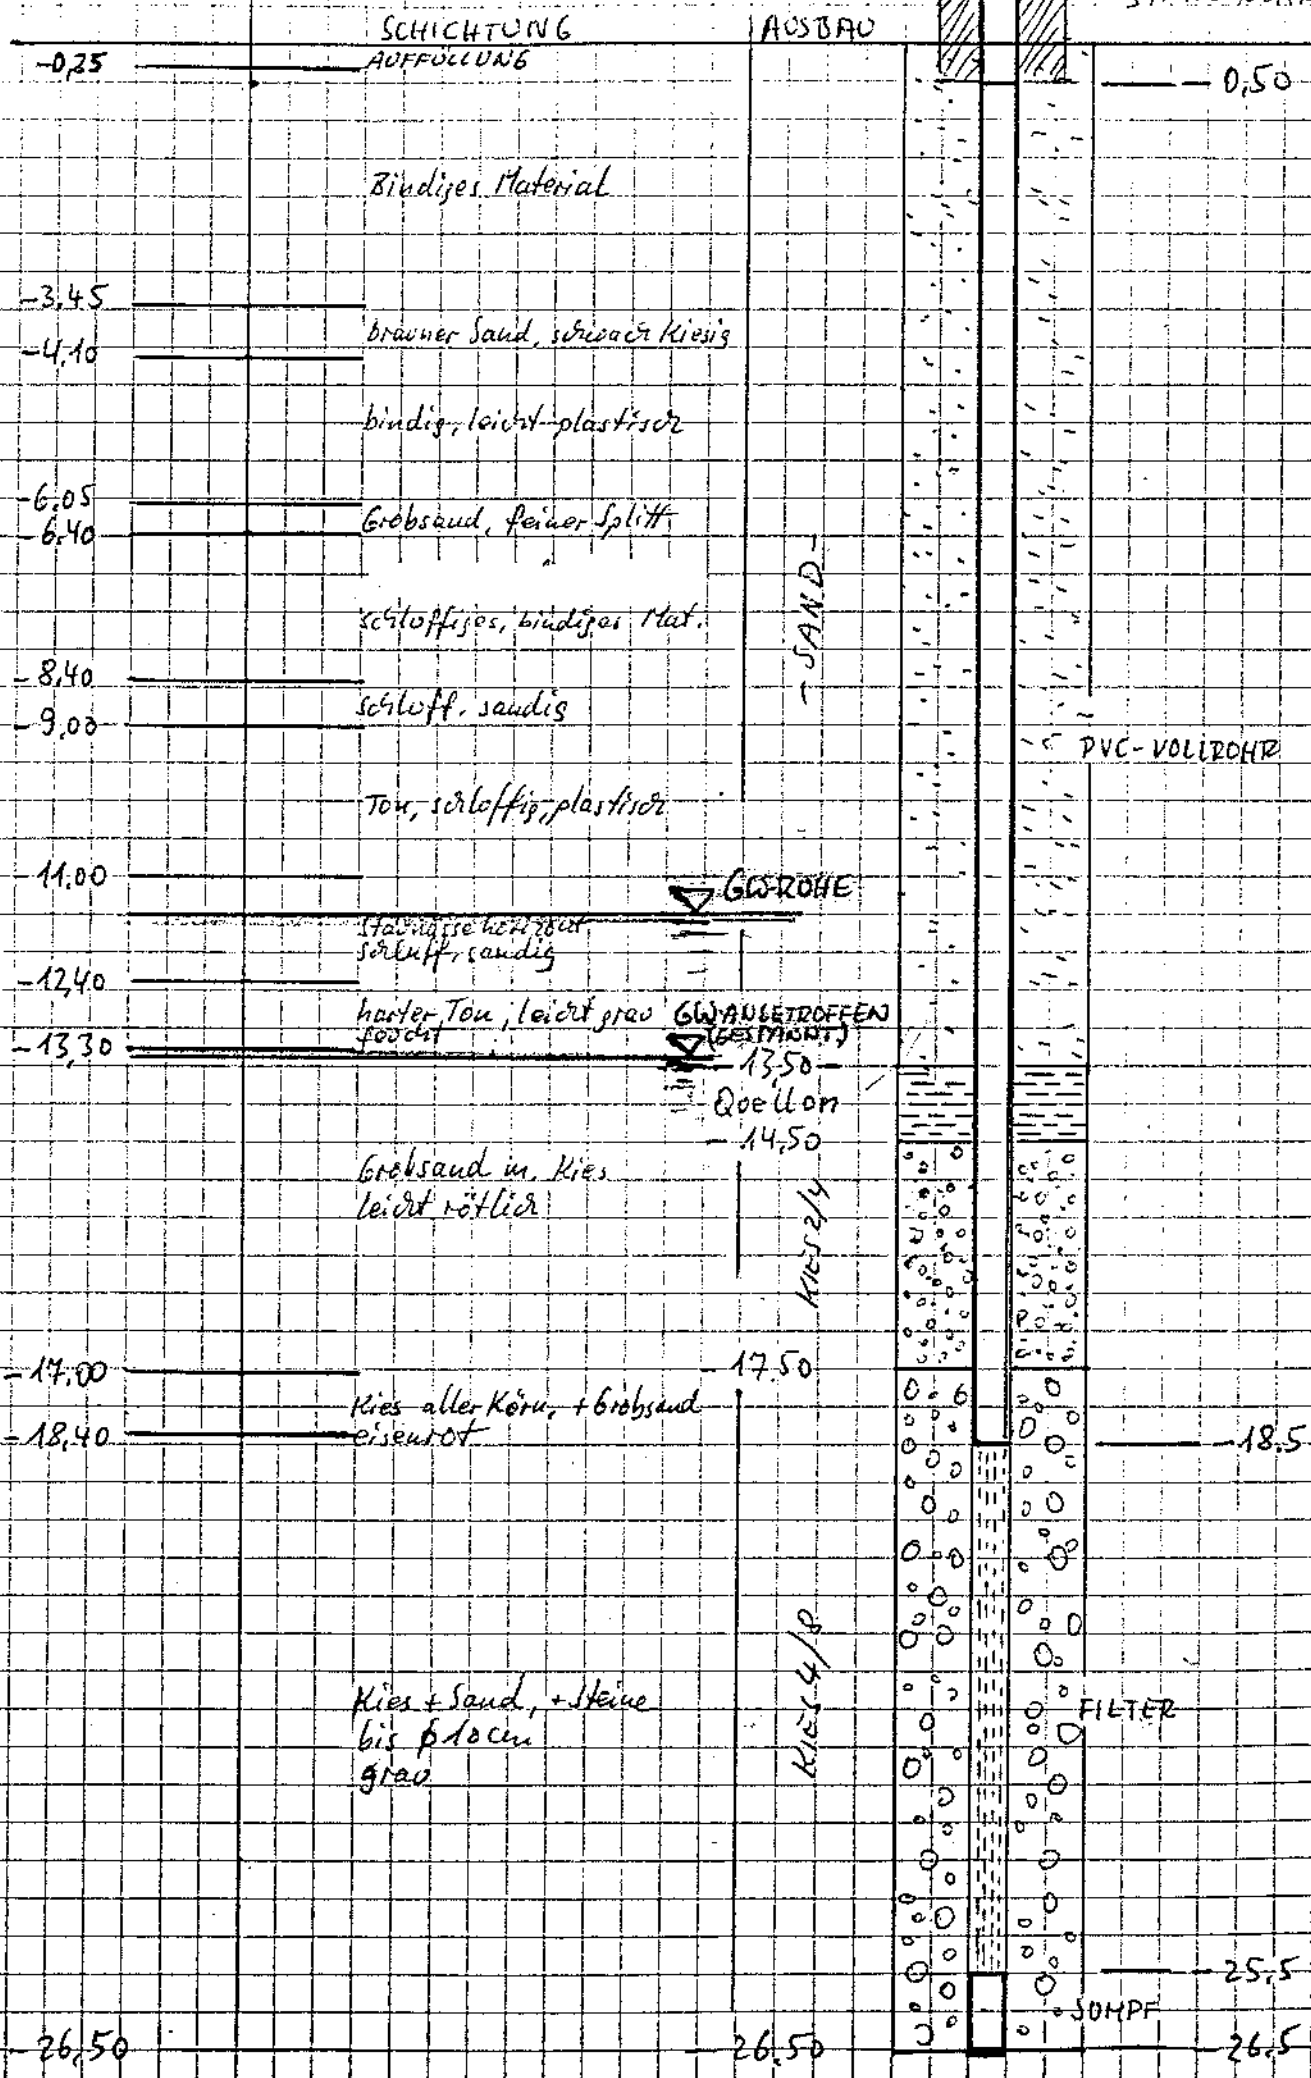 SCHICHTUNG
AUSBAU
-0,25
AUFFÜLLUNG
0,50
Bindiges Material
-3,45
brauner Sand, schwach Kiesig
-4,10
bindig, leicht plastisch
-6.05
Grobsand, feiner Splitt
-6.40
-SAND-
schloffiges, bindiges Mat.
-8,40
schloff. sandig
-9,00
PVC-VOLLROHR
Ton, schloffig, plastisch
-11.00
GW-ROHE
schluff, sandig
-12,40
harter Ton, leicht grau
feucht
GW ANGETROFFEN
(GESPANNT)
-13,30
-13,50-
Quellon
-14,50
Grobsand m. Kies
leicht rötlich
KIES 2/4
-17.00
-17.50
Kies aller Körn. + Grobsand
eisenrot
-18,40
-18.5
KIES 4/8
Kies + Sand, + Steine
bis ϕ 10cm
grau
FILTER
-25,5
SUMPF
-26,50
-26,50
-26,5